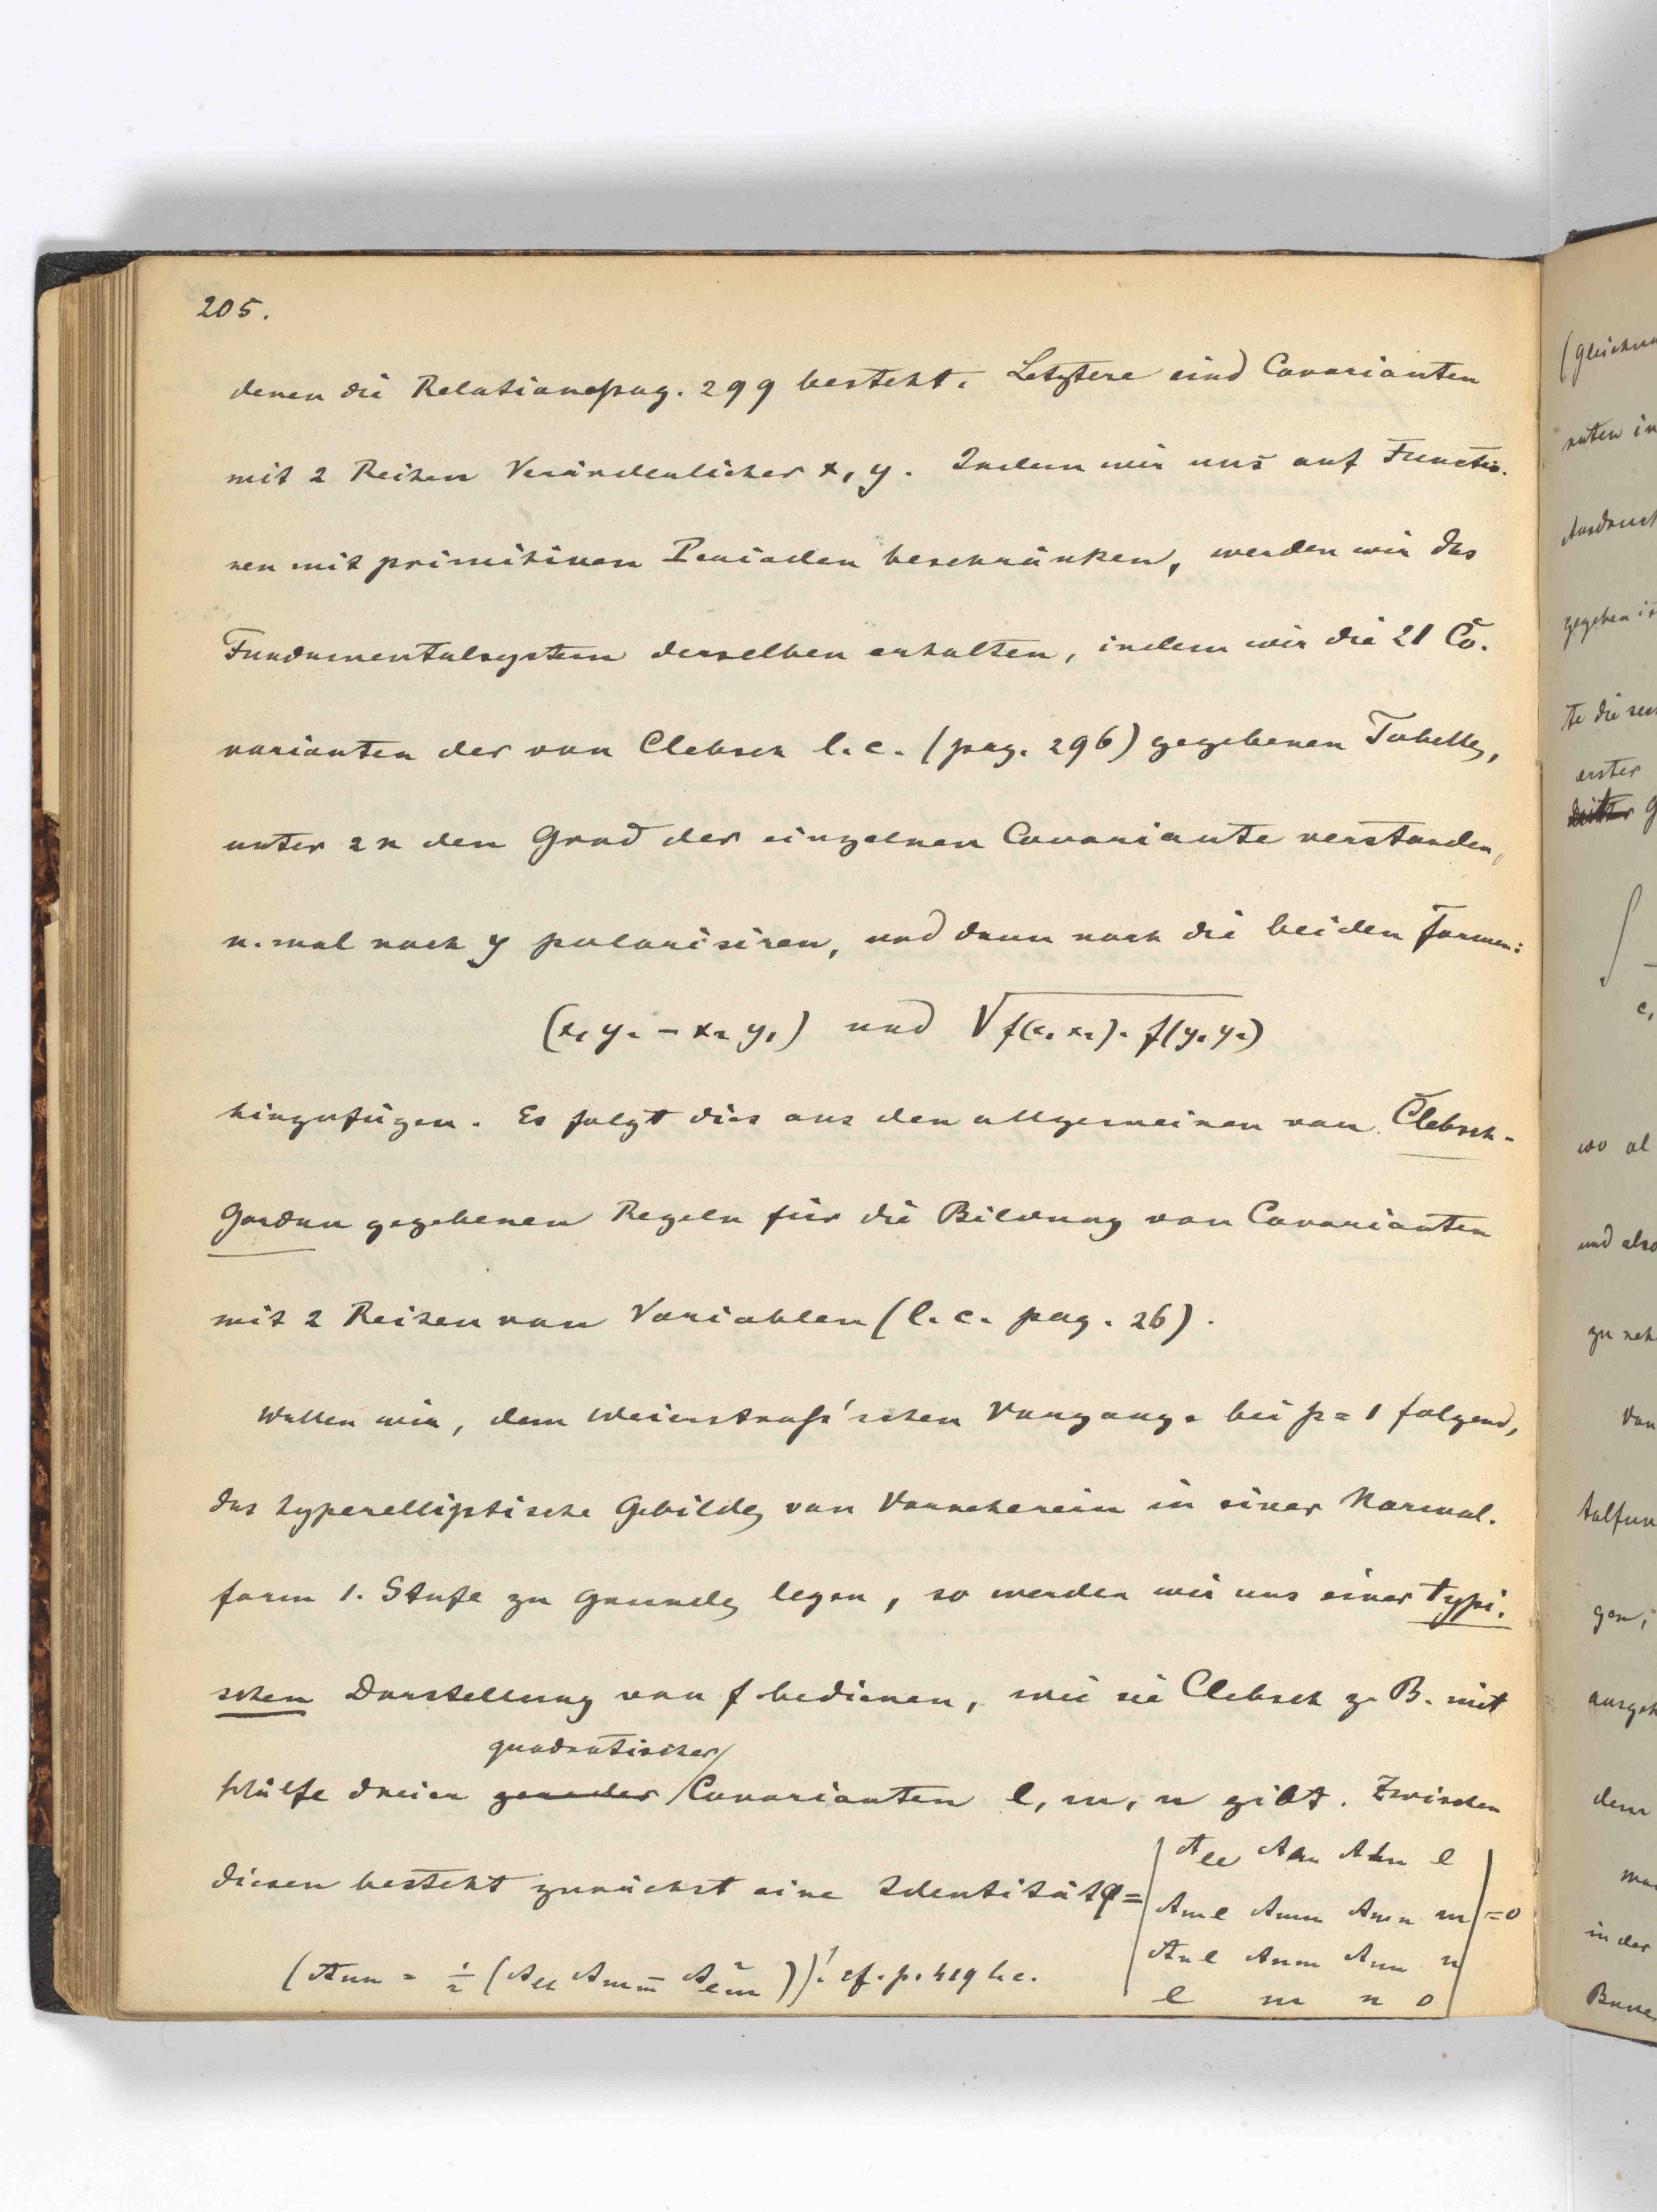 205.
denen die Relation pag. 299 besteht. Letztere sind Covarianten
mit 2 Reihen Veränderlicher x, y. Indem wir uns auf Functio-
nen mit primitiven Perioden beschränken, werden wir das
Fundamentalsystem derselben erhalten, indem wir die 21 Co-
varianten der von Clebsch l. c. (pag. 296) gegebenen Tabelle,
unter 2n den Grad der einzelnen Covariante verstanden,
n-mal nach y polarisiren, und dann noch die beiden Formen:
(x₁ y₂ – x₂ y₁) und √f(x₁ x₂). f(y₁ y₂)
hinzufügen. Es folgt dies aus den allgemeinen von Clebsch-
Gordan gegebenen Regeln für die Bildung von Covarianten
mit 2 Reihen von Variablen (l. c. pag. 26).
Wollen wir, dem Weierstraß'schen Vorgange bei p = 1 folgend,
das hyperelliptische Gebilde von Vorneherein in einer Normal-
form 1. Stufe zu Grunde legen, so werden wir uns einer typi-
schen Darstellung von f bedienen, wie sie Clebsch z. B. mit
quadratischer
Hülfe dreier gerader Covarianten l, m, n gibt. Zwischen
diesen besteht zunächst eine Identität φ =
All Alm Aln l
Aml Amm Amn m = 0
Anl Anm Ann n
l m n 0
(Ann = ½ (All Amm – A²lm))! cf. p. 419 l. c.
(Gleichu
Ausdruck
erster
wo al
und also
dem
in der